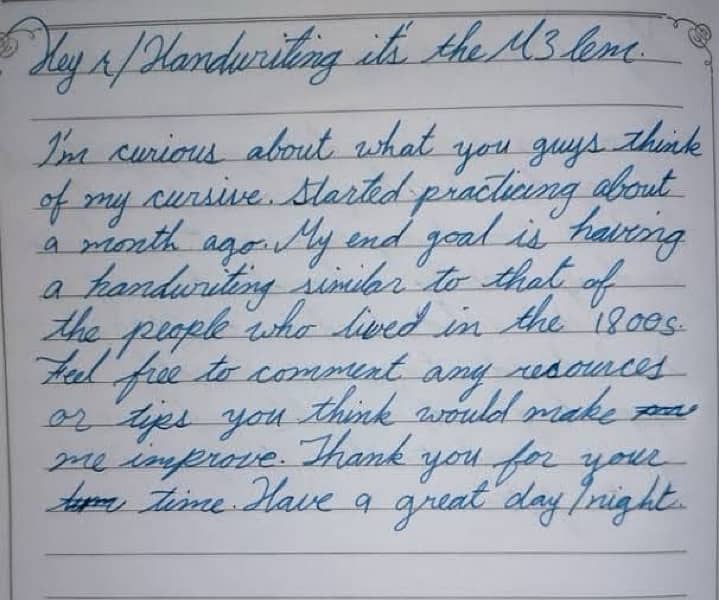 Hey r/Handwriting it's the M3 lem.
I'm curious about what you guys think
of my cursive. Started practicing about
a month ago. My end goal is having
a handwriting similar to that of
the people who lived in the 1800s.
Feel free to comment any resources
or tips you think would make
me improve. Thank you for your
time. Have a great day/night.